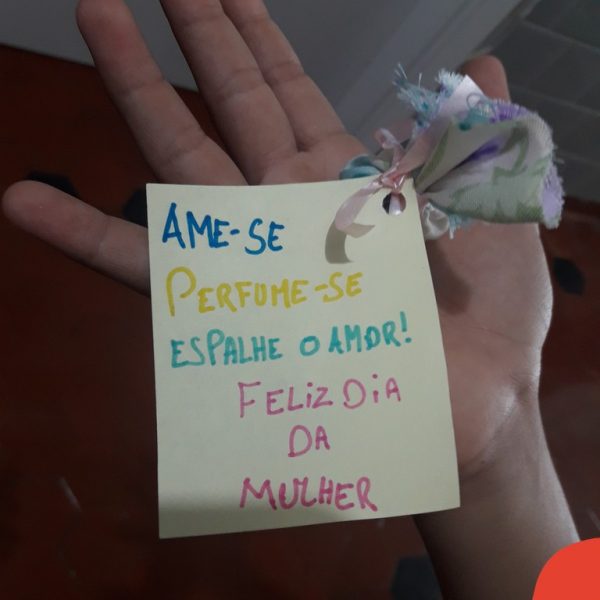 AME-SE
PERFUME-SE
ESPALHE O AMOR!
FELIZ DIA
DA
MULHER